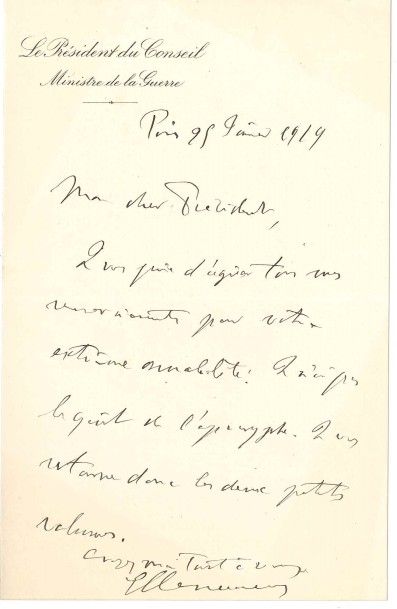 Le Président du Conseil
Ministre de la Guerre
Paris 25 Janvier 1919
Mon cher Président,
Je vous prie d'agréer tous mes
remerciements pour votre
extrême amabilité. Je n'ai pas
le goût de l'apocryphe. Je vous
retourne donc les deux petits
volumes.
Tout à vous
GClemenceau